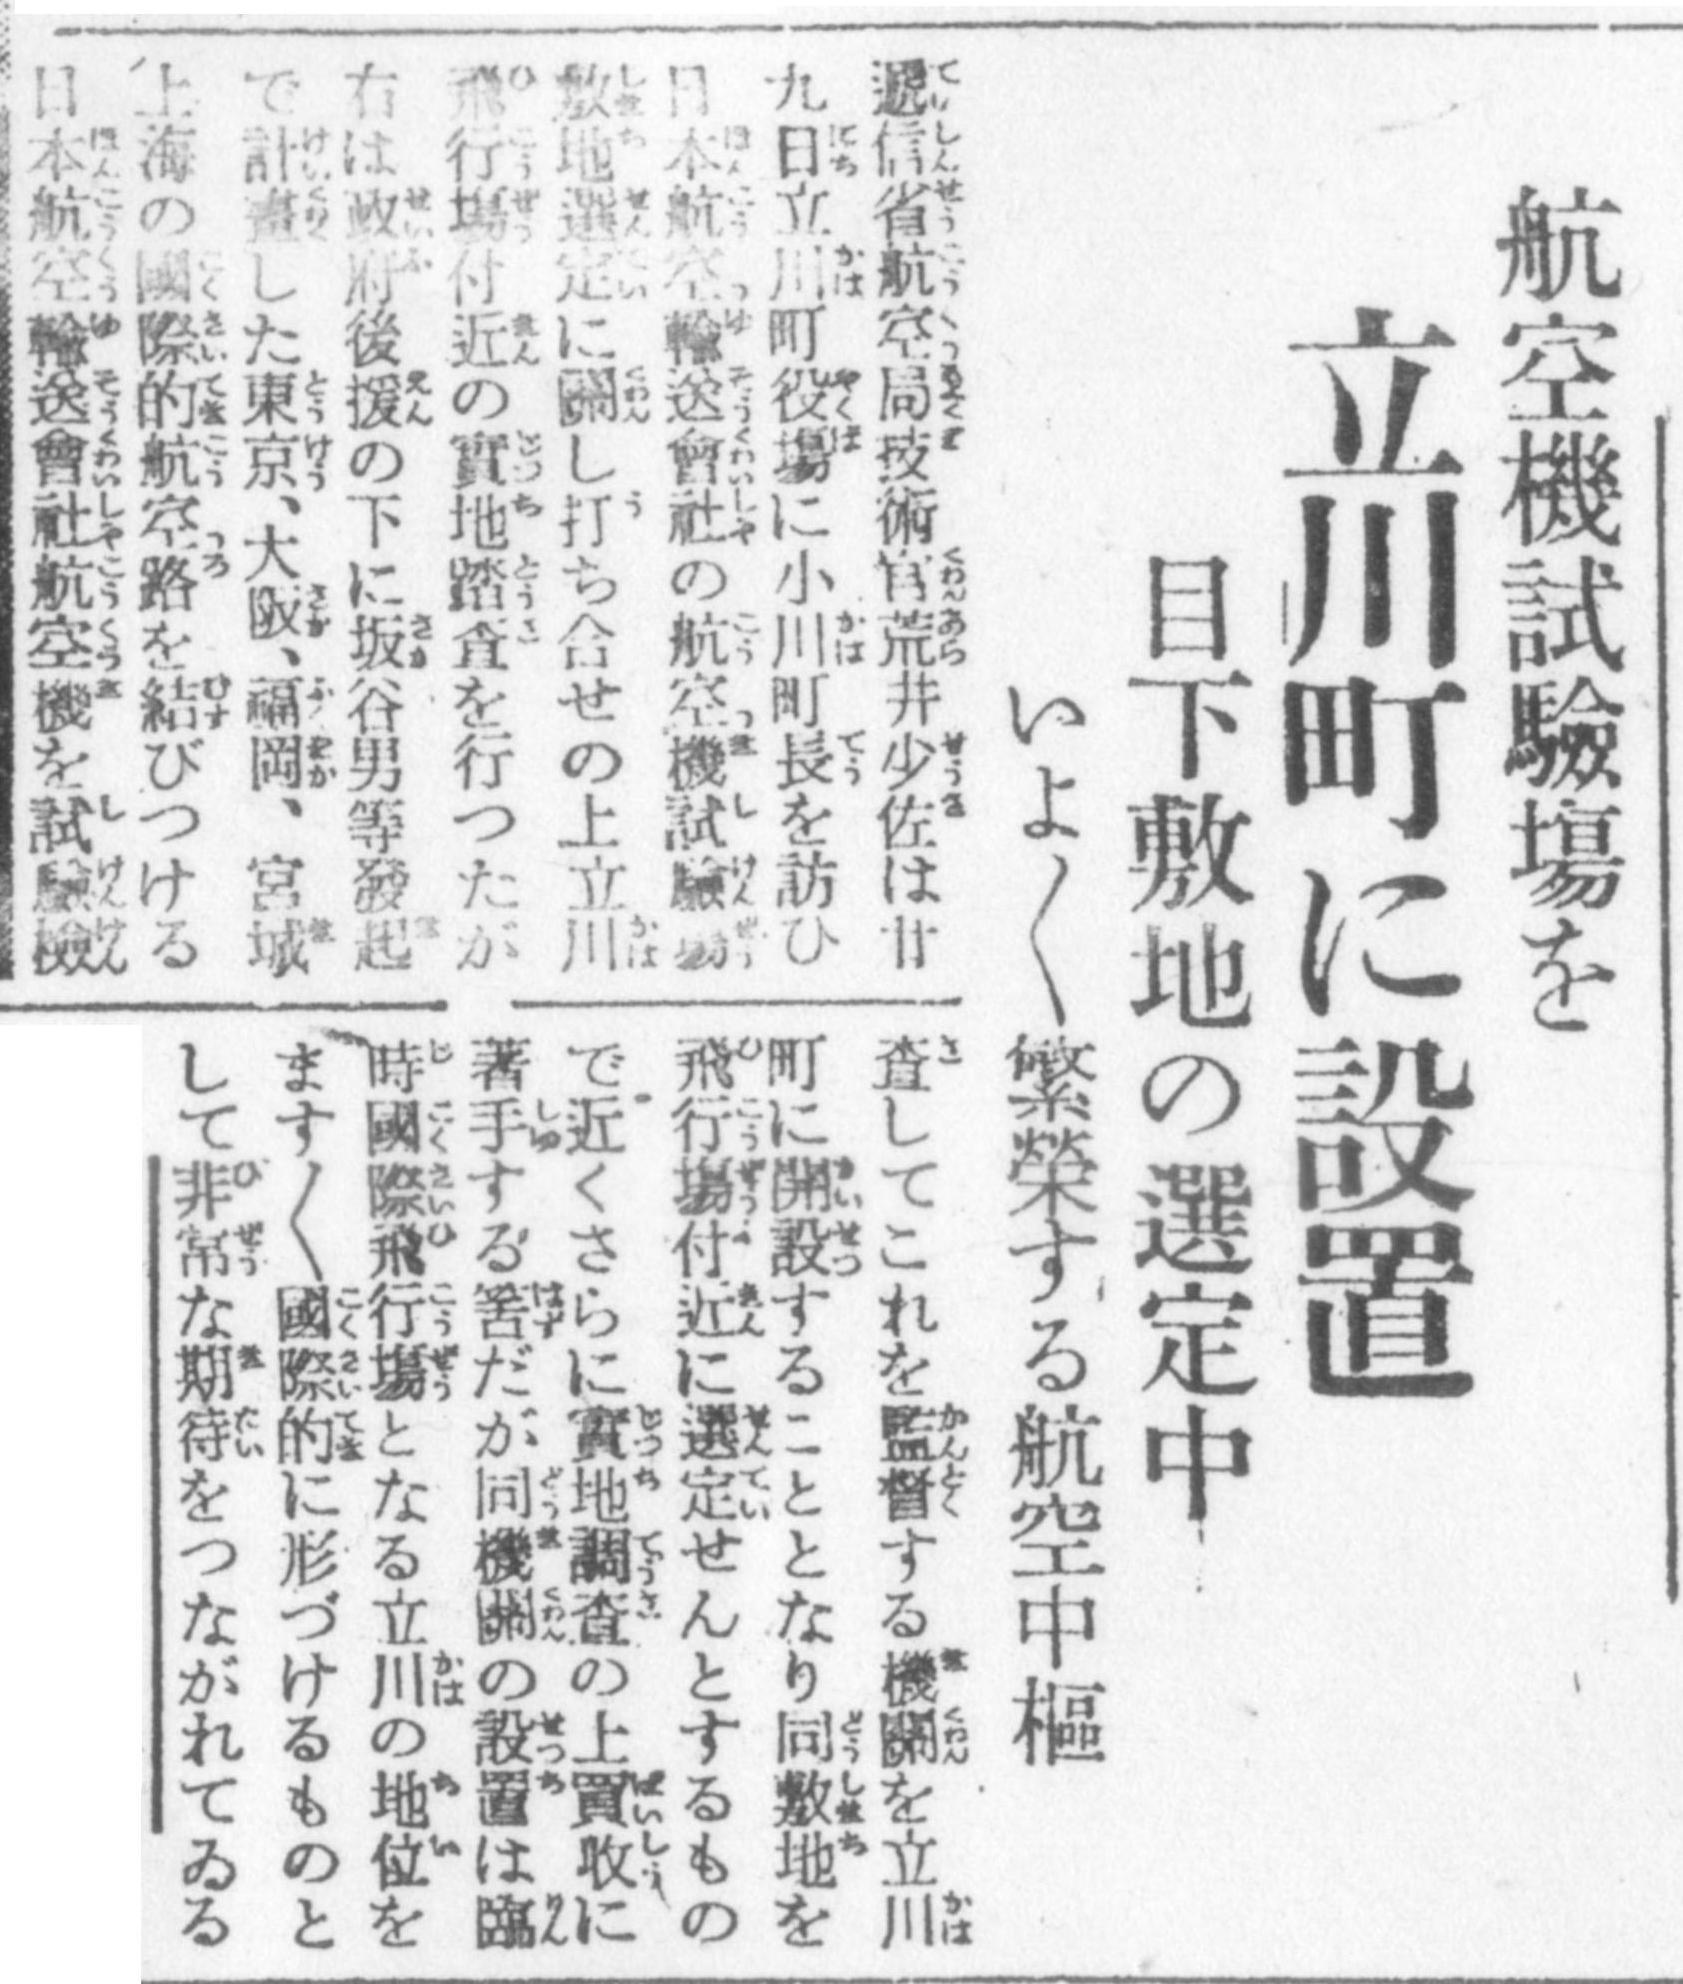 航空機試驗場を
立川町に設置
目下敷地の選定中
いよ〱繁榮する航空中樞
遞信省航空局技術官荒井少佐は廿
九日立川町役場に小川町長を訪ひ
日本航空輸送會社の航空機試驗場
敷地選定に關し打ち合せの上立川
飛行場付近の實地踏査を行つたが
右は政府後援の下に坂谷男等發起
で計畫した東京、大阪、福岡、宮城
上海の國際的航空路を結びつける
日本航空輸送會社航空機を試驗檢
査してこれを監督する機關を立川
町に開設することとなり同敷地を
飛行場付近に選定せんとするもの
で近くさらに實地調査の上買收に
著手する筈だが同機關の設置は臨
時國際飛行場となる立川の地位を
ます〱國際的に形づけるものと
して非常な期待をつながれてゐる